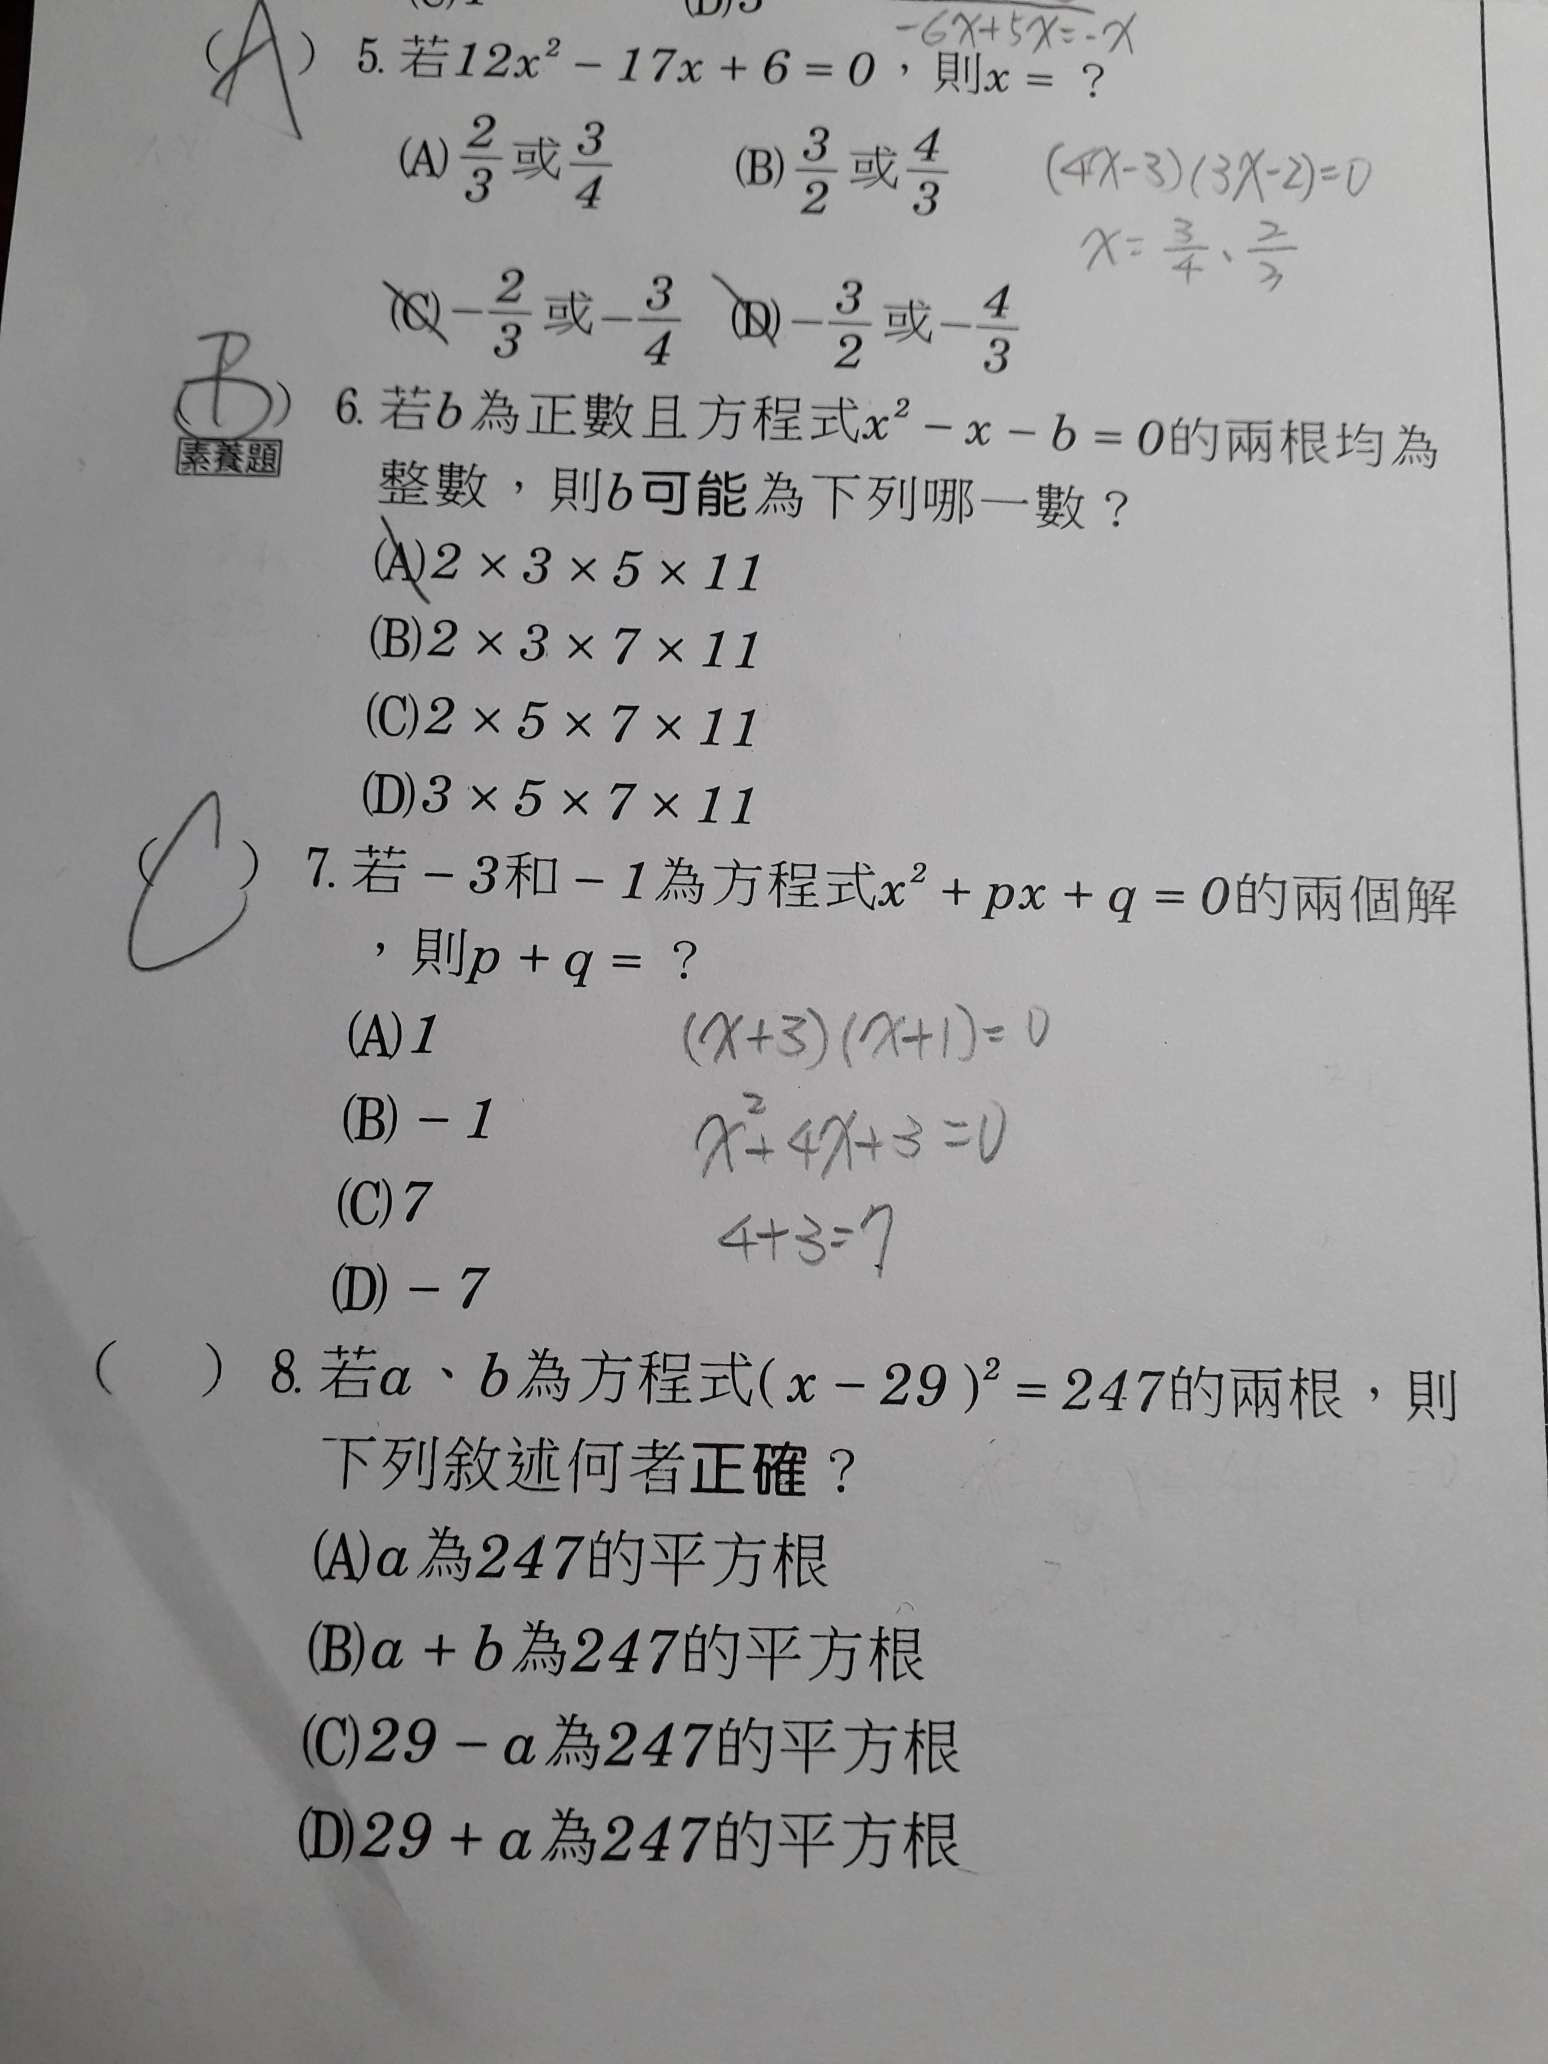 -6x+5x=-x
(A) 5. 若12x² − 17x + 6 = 0，則x = ？
(A) 2/3 或 3/4 (B) 3/2 或 4/3
(4x-3)(3x-2)=0
x = 3/4、2/3
(C) −2/3 或 −3/4 (D) −3/2 或 −4/3
(B) 6. 若b為正數且方程式x² − x − b = 0的兩根均為
素養題
整數，則b可能為下列哪一數？
(A) 2 × 3 × 5 × 11
(B) 2 × 3 × 7 × 11
(C) 2 × 5 × 7 × 11
(D) 3 × 5 × 7 × 11
(C) 7. 若 − 3和 − 1為方程式x² + px + q = 0的兩個解
，則p + q = ？
(A) 1
(x+3)(x+1)=0
(B) − 1
x²+4x+3=0
(C) 7
4+3=7
(D) − 7
( ) 8. 若a、b為方程式( x − 29 )² = 247的兩根，則
下列敘述何者正確？
(A) a為247的平方根
(B) a + b為247的平方根
(C) 29 − a為247的平方根
(D) 29 + a為247的平方根